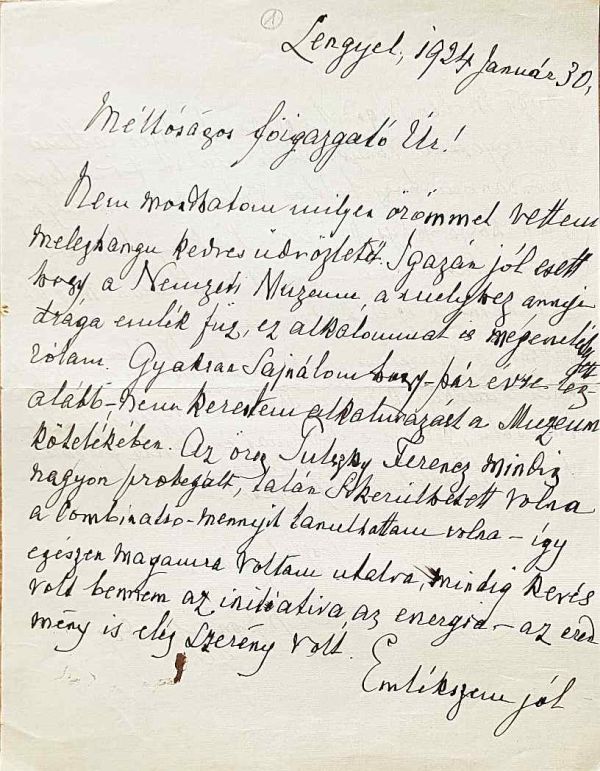 1
Lengyel, 1924 Január 30,
Méltóságos főigazgató Úr!
Nem mondhatom milyen örömmel vettem
meleghangu kedves üdvözletét. Igazán jól esett
hogy a Nemzeti Muzeum, a melyhez annyi
drága emlék füz, ez alkalommal is megemléke-
zett
rólam. Gyakran sajnálom hogy – pár évre leg-
alább – nem kerestem alkalmazást a Muzeum
kötelékében. Az öreg Pulszky Ferencz mindig
nagyon protegált, talán sikerülhetett volna
a combinatio – mennyit tanulhattam volna – így
egészen magamra voltam utalva, mindig kevés
volt bennem az initiativa, az energia – az ered
mény is elég szerény volt.
Emlékszem jól